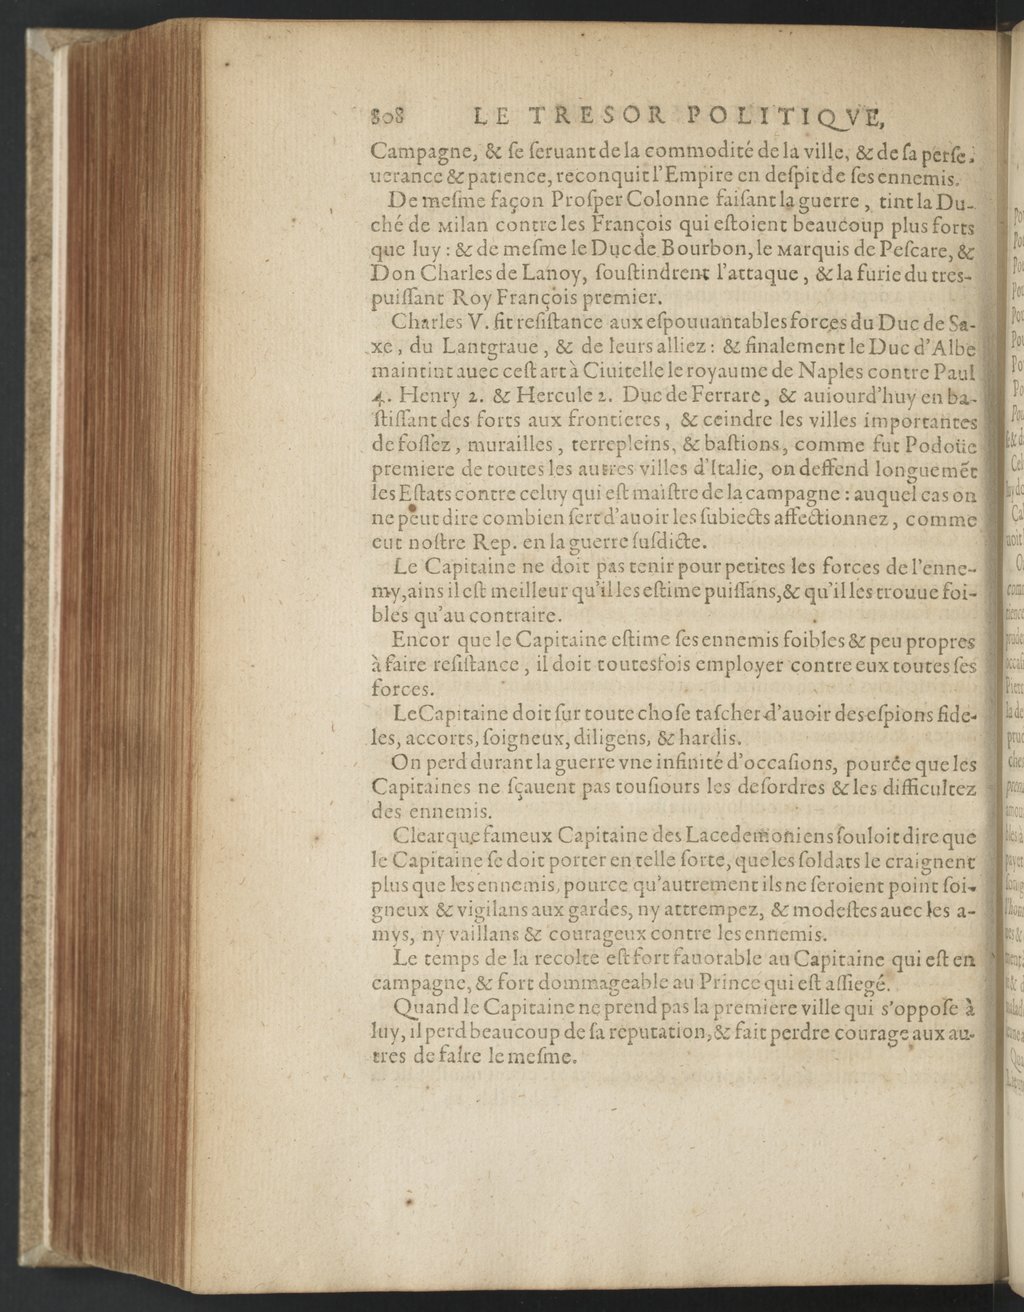 808 LE TRESOR POLITIQVE,
Campagne, & ſe ſeruant de la commodité de la ville, & de ſa perſe-
uerance & patience, reconquit l'Empire en deſpit de ſes ennemis.
De meſme façon Proſper Colonne faiſant la guerre, tint la Du-
ché de Milan contre les François qui eſtoient beaucoup plus forts
que luy : & de meſme le Duc de Bourbon, le Marquis de Peſcare, &
Don Charles de Lanoy, ſouſtindrent l'attaque, & la furie du tres-
puiſſant Roy François premier.
Charles V. fit reſiſtance aux eſpouuantables forces du Duc de Sa-
xe, du Lantgraue, & de leurs alliez : & finalement le Duc d'Albe
maintint auec ceſt art à Ciuitelle le royaume de Naples contre Paul
4. Henry 2. & Hercule 2. Duc de Ferrare, & auiourd'huy en ba-
ſtiſſant des forts aux frontieres, & ceindre les villes importantes
de foſſez, murailles, terrepleins, & baſtions, comme fut Podoüe
premiere de toutes les autres villes d'Italie, on deffend longuemẽt
les Eſtats contre celuy qui eſt maiſtre de la campagne : auquel cas on
ne peut dire combien ſert d'auoir les ſubiects affectionnez, comme
eut noſtre Rep. en la guerre ſuſdicte.
Le Capitaine ne doit pas tenir pour petites les forces de l'enne-
my, ains il eſt meilleur qu'il les eſtime puiſſans, & qu'il les trouue foi-
bles qu'au contraire.
Encor que le Capitaine eſtime ſes ennemis foibles & peu propres
à faire reſiſtance, il doit toutesfois employer contre eux toutes ſes
forces.
Le Capitaine doit ſur toute choſe taſcher d'auoir des eſpions fide-
les, accorts, ſoigneux, diligens, & hardis.
On perd durant la guerre vne infinité d'occaſions, pource que les
Capitaines ne ſçauent pas touſiours les deſordres & les difficultez
des ennemis.
Clearque fameux Capitaine des Lacedemoniens ſouloit dire que
le Capitaine ſe doit porter en telle ſorte, que les ſoldats le craignent
plus que les ennemis, pource qu'autrement ils ne ſeroient point ſoi-
gneux & vigilans aux gardes, ny attrempez, & modeſtes auec les a-
mys, ny vaillans & courageux contre les ennemis.
Le temps de la recolte eſt fort fauorable au Capitaine qui eſt en
campagne, & fort dommageable au Prince qui eſt aſſiegé.
Quand le Capitaine ne prend pas la premiere ville qui s'oppoſe à
luy, il perd beaucoup de ſa reputation, & fait perdre courage aux au-
tres de faire le meſme.